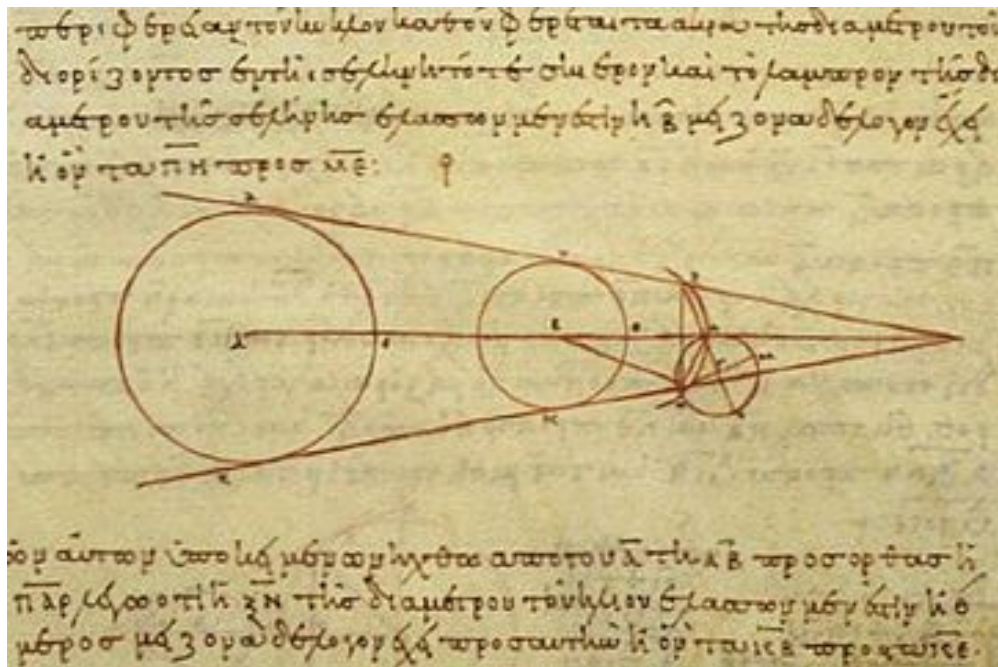 τὸν κύκλον καθ' ὃν φέρεται τὰ ἄκρα τῆς διαμέτρου τοῦ
διορίζοντος ἐν τῆι σελήνηι τό τε σκιερὸν καὶ τὸ λαμπρὸν τῆς δι
αμέτρου τῆς σελήνης ἐλάσσων μέν ἐστιν ἢ β̄ μείζονα δὲ λόγον ἔχει
ἢ ὃν τὰ π̄η̄ πρὸς μ̄ε̄:
τῶν αὐτῶν ὑποκειμένων ἤχθω ἀπὸ τοῦ λ̄ τῆ λ̄β̄ πρὸς ὀρθὰς ἡ
π̄λ̄ρ̄ λέγω ὅτι ἡ ξ̄ν̄ τῆς διαμέτρου τοῦ ἡλίου ἐλάσσων μέν ἐστιν ἢ θ
μέρος μείζονα δὲ λόγον ἔχει πρὸς αὐτὴν ἢ ὃν τὰ κ̄β̄ πρὸς τὰ σ̄κ̄ε̄.